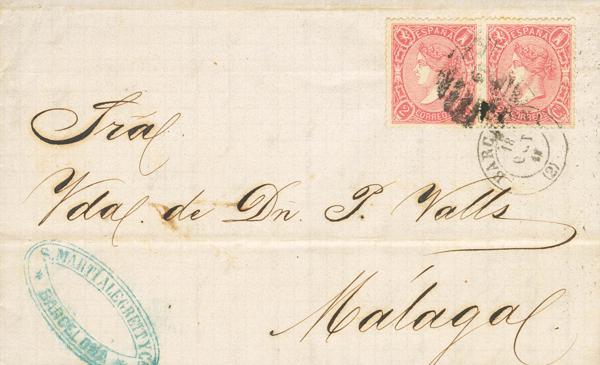 ESPAÑA ESPAÑA
CORREO
BARC
18
OCT
(2)
Sra
Vda. de Dn. P. Valls
Málaga
S. MARTI ALEGRETT Y Cª
* BARCELONA *